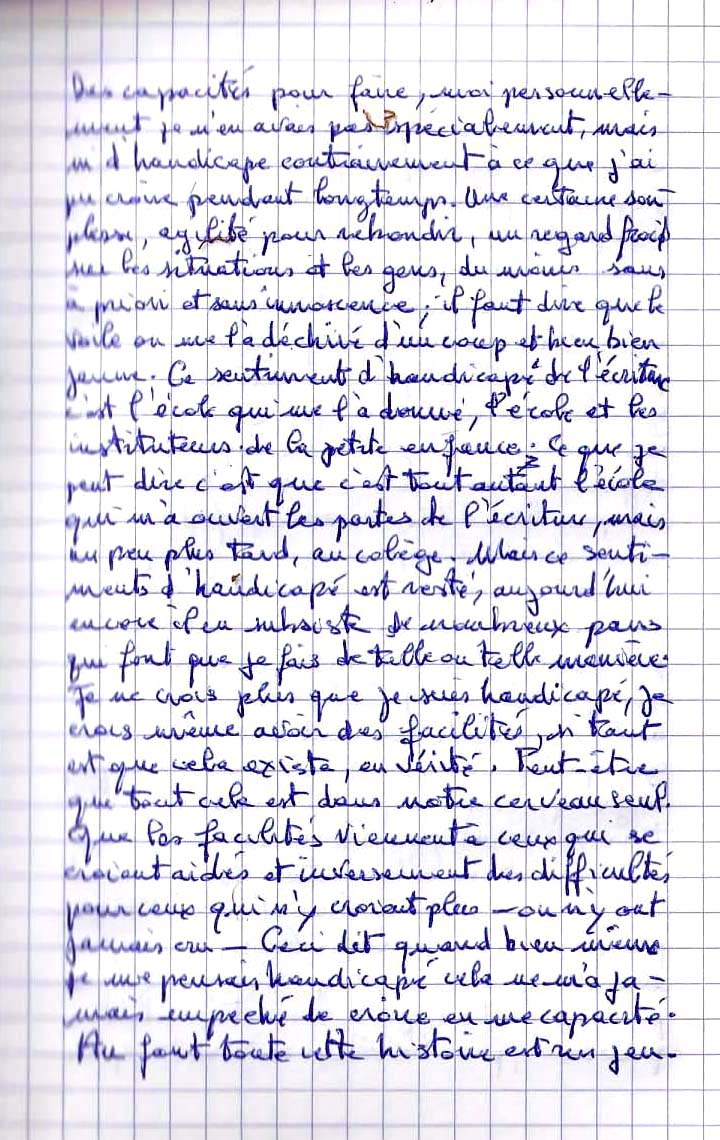 Des capacités pour faire, moi personnelle-
ment je n'en avais pas spécialement, mais
ni d'handicape contrairement à ce que j'ai
pu croire pendant longtemps. Une certaine sou-
plesse, agilité pour rebondir, un regard froid
sur les situations et les gens, du moins sans
à priori et sans innoscence; il faut dire que le
voile on me l'à déchiré d'un coup et bien bien
jeune. Ce sentiment d'handicapé de l'écriture
c'est l'école qui me l'à donné, l'école et les
instituteurs de la petite enfance. Ce que je
peut dire c'est que c'est tout autant l'école
qui m'a ouvert les portes de l'écriture, mais
un peu plus tard, au colège. Mais ce senti-
ments d'handicapé est resté, aujourd'hui
encore il en subsiste de nombreux pans
qui font que je fais de telle ou telle manière.
Je ne crois plus que je suis handicapé, je
crois même avoir des facilités, si tant
est que cela existe, en vérité. Peut-être
que tout cela est dans notre cerveau seul.
Que les facilités viennent à ceux qui se
croient aidés et inversement des difficultés
pour ceux qui n'y croient plus — ou n'y ont
jamais cru — Ceci dit quand bien même
je me pensais handicapé cela ne m'a ja-
mais empeché de croire en me capacité.
Au font toute cette histoire est un jeu.